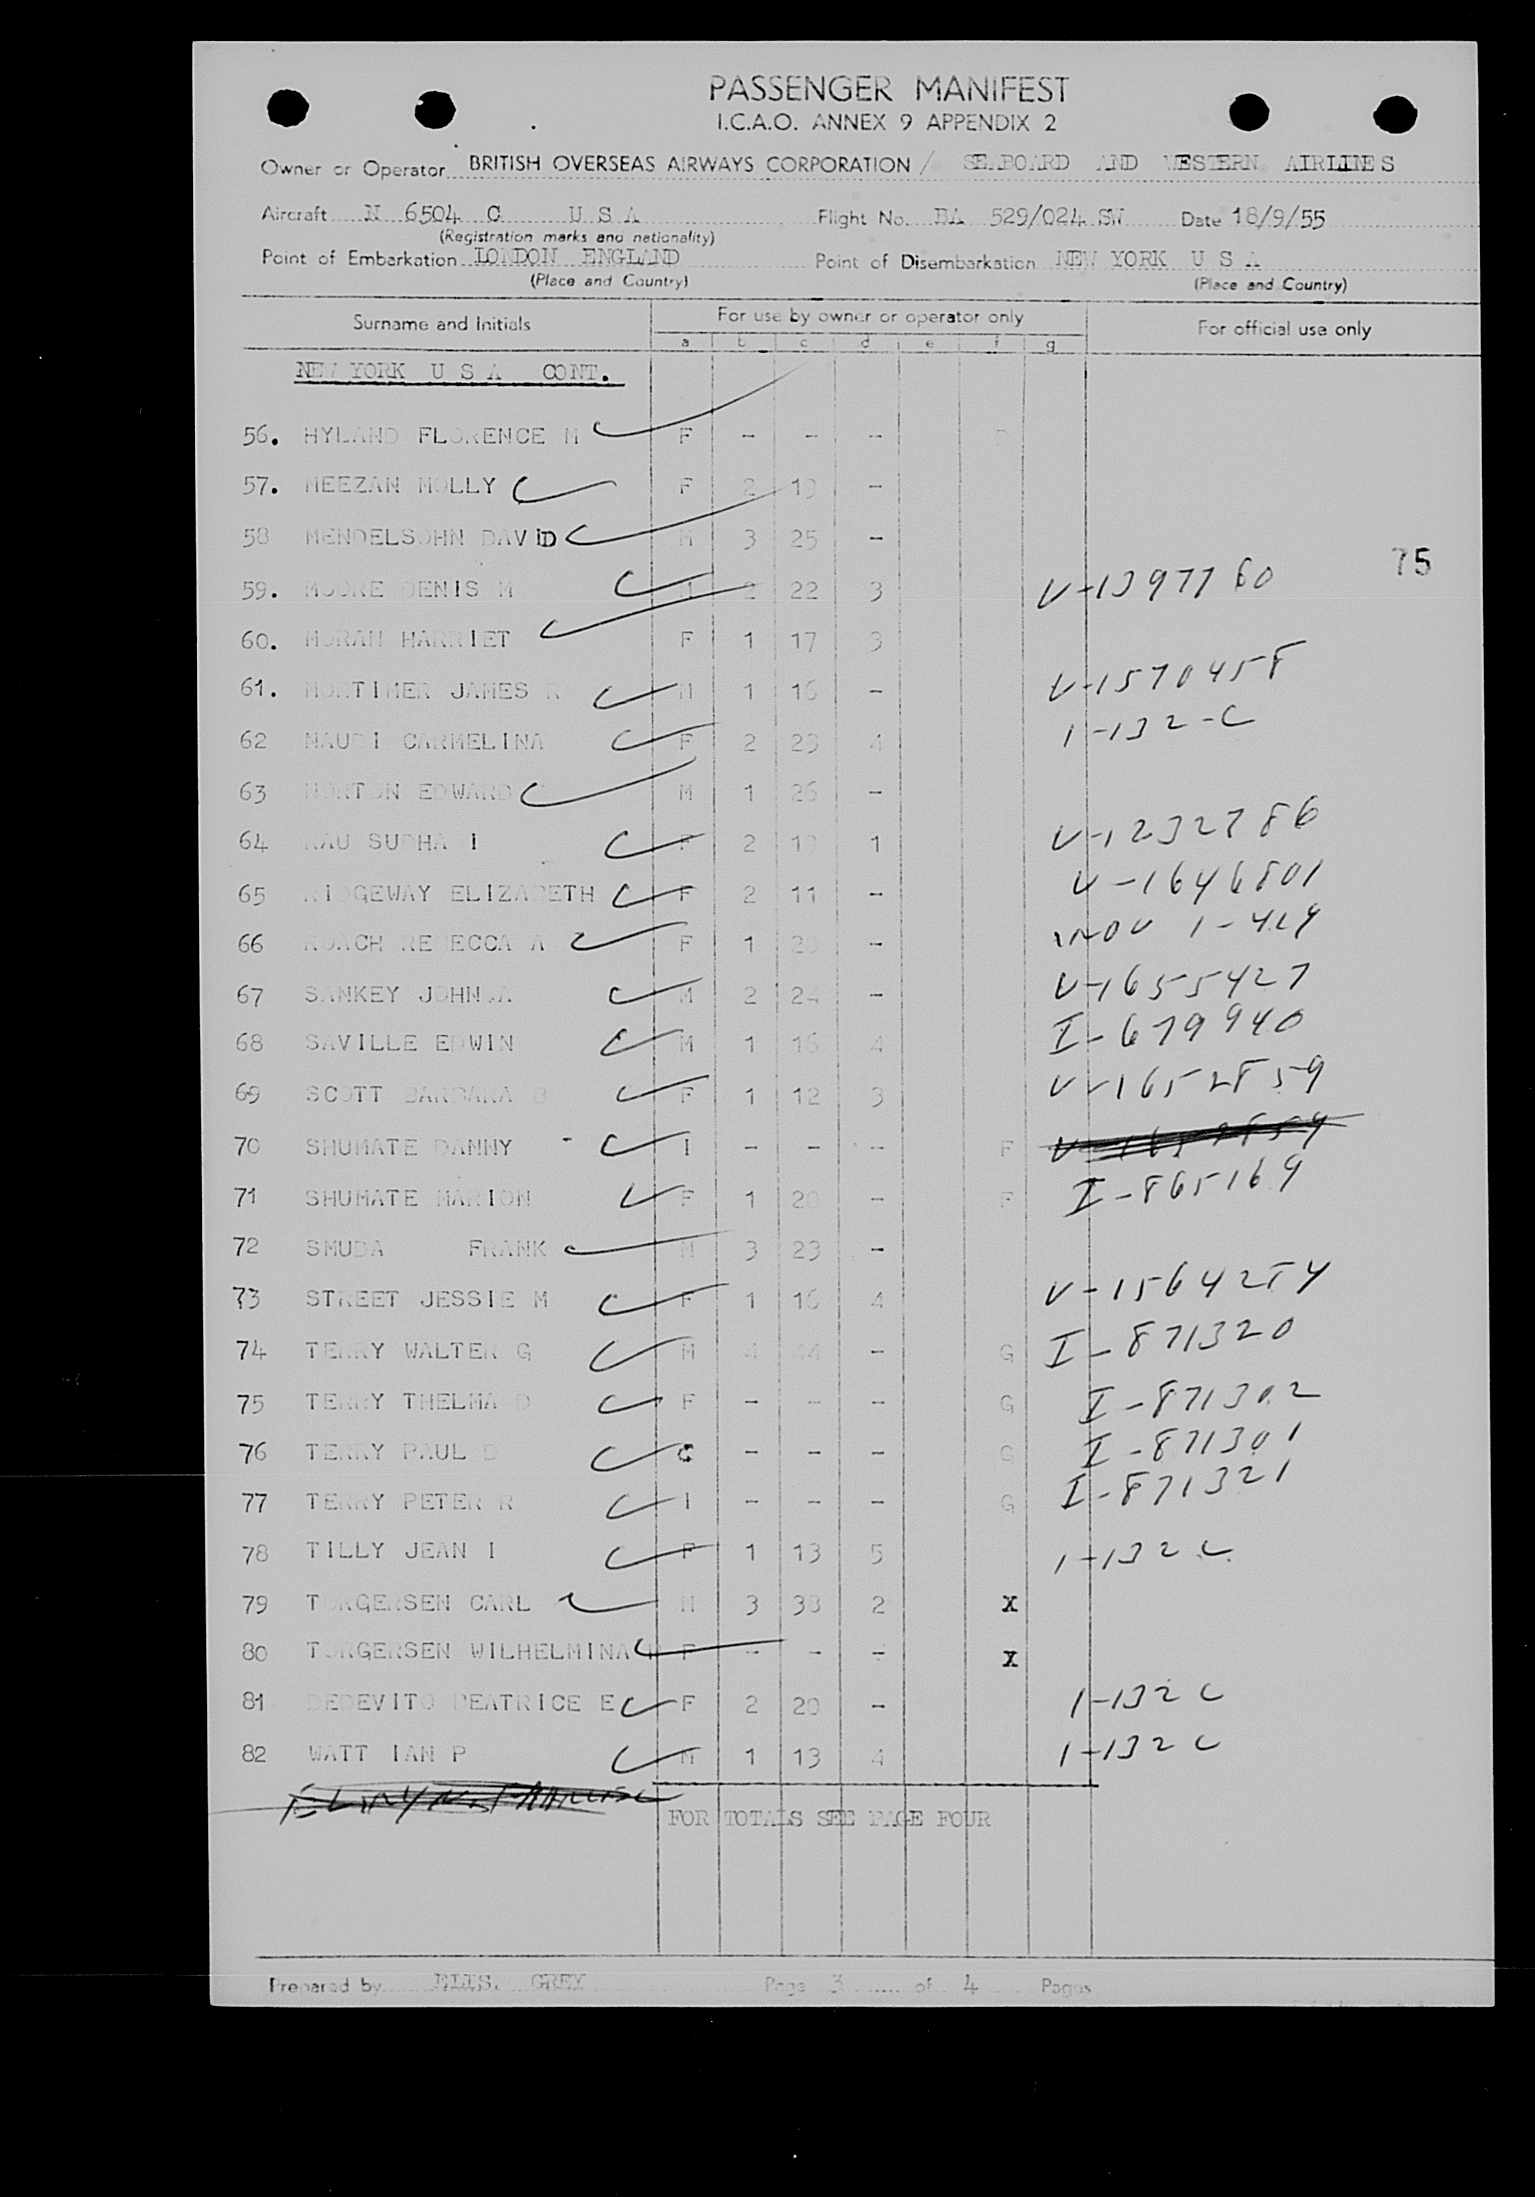 PASSENGER MANIFEST
I.C.A.O. ANNEX 9 APPENDIX 2
Owner or Operator BRITISH OVERSEAS AIRWAYS CORPORATION / SEABOARD AND WESTERN AIRLINES
Aircraft N 6504 C U S A Flight No. BA 529/024 SW Date 18/9/55
(Registration marks and nationality)
Point of Embarkation LONDON ENGLAND Point of Disembarkation NEW YORK U S A
(Place and Country) (Place and Country)
Surname and Initials For use by owner or operator only For official use only
a b c d e f g
NEW YORK U S A CONT.
56. HYLAND FLORENCE M F - - -
57. MEEZAN MOLLY F 2 19 -
58 MENDELSOHN DAVID M 3 25 -
75
59. MOORE DENIS M M 2 22 3 V-1397760
60. MORAN HARRIET F 1 17 3
61. MORTIMER JAMES R M 1 16 - V-1570458
62 NAUDI CARMELINA F 2 23 4 1-132-C
63 NORTON EDWARD M 1 26 -
64 RAU SUDHA I F 2 19 1 V-1232786
65 RIDGEWAY ELIZABETH F 2 11 - V-1646801
66 ROACH REBECCA A F 1 - 1-429
67 SANKEY JOHN.A M 2 24 - V-1655427
68 SAVILLE EDWIN M 1 16 4 I-679940
69 SCOTT BARBARA B F 1 12 3 V-1652859
70 SHUMATE DANNY - I - - - F
71 SHUMATE MARION F 1 20 - F I-865169
72 SMUDA FRANK M 3 23 -
73 STREET JESSIE M F 1 16 4 V-1564254
74 TERRY WALTER G M 4 44 - G I-871320
75 TERRY THELMA D F - - - G I-871302
76 TERRY PAUL D C - - - G I-871301
77 TERRY PETER R I - - - G I-871321
78 TILLY JEAN I F 1 13 5 1-132 C
79 TORGERSEN CARL M 3 38 2 X
80 TORGERSEN WILHELMINA F - - - X
81 DEDEVITO BEATRICE E F 2 20 - 1-132 C
82 WATT IAN P M 1 13 4 1-132 C
FOR TOTALS SEE PAGE FOUR
Prepared by ELIS. GREY Page 3 of 4 Pages